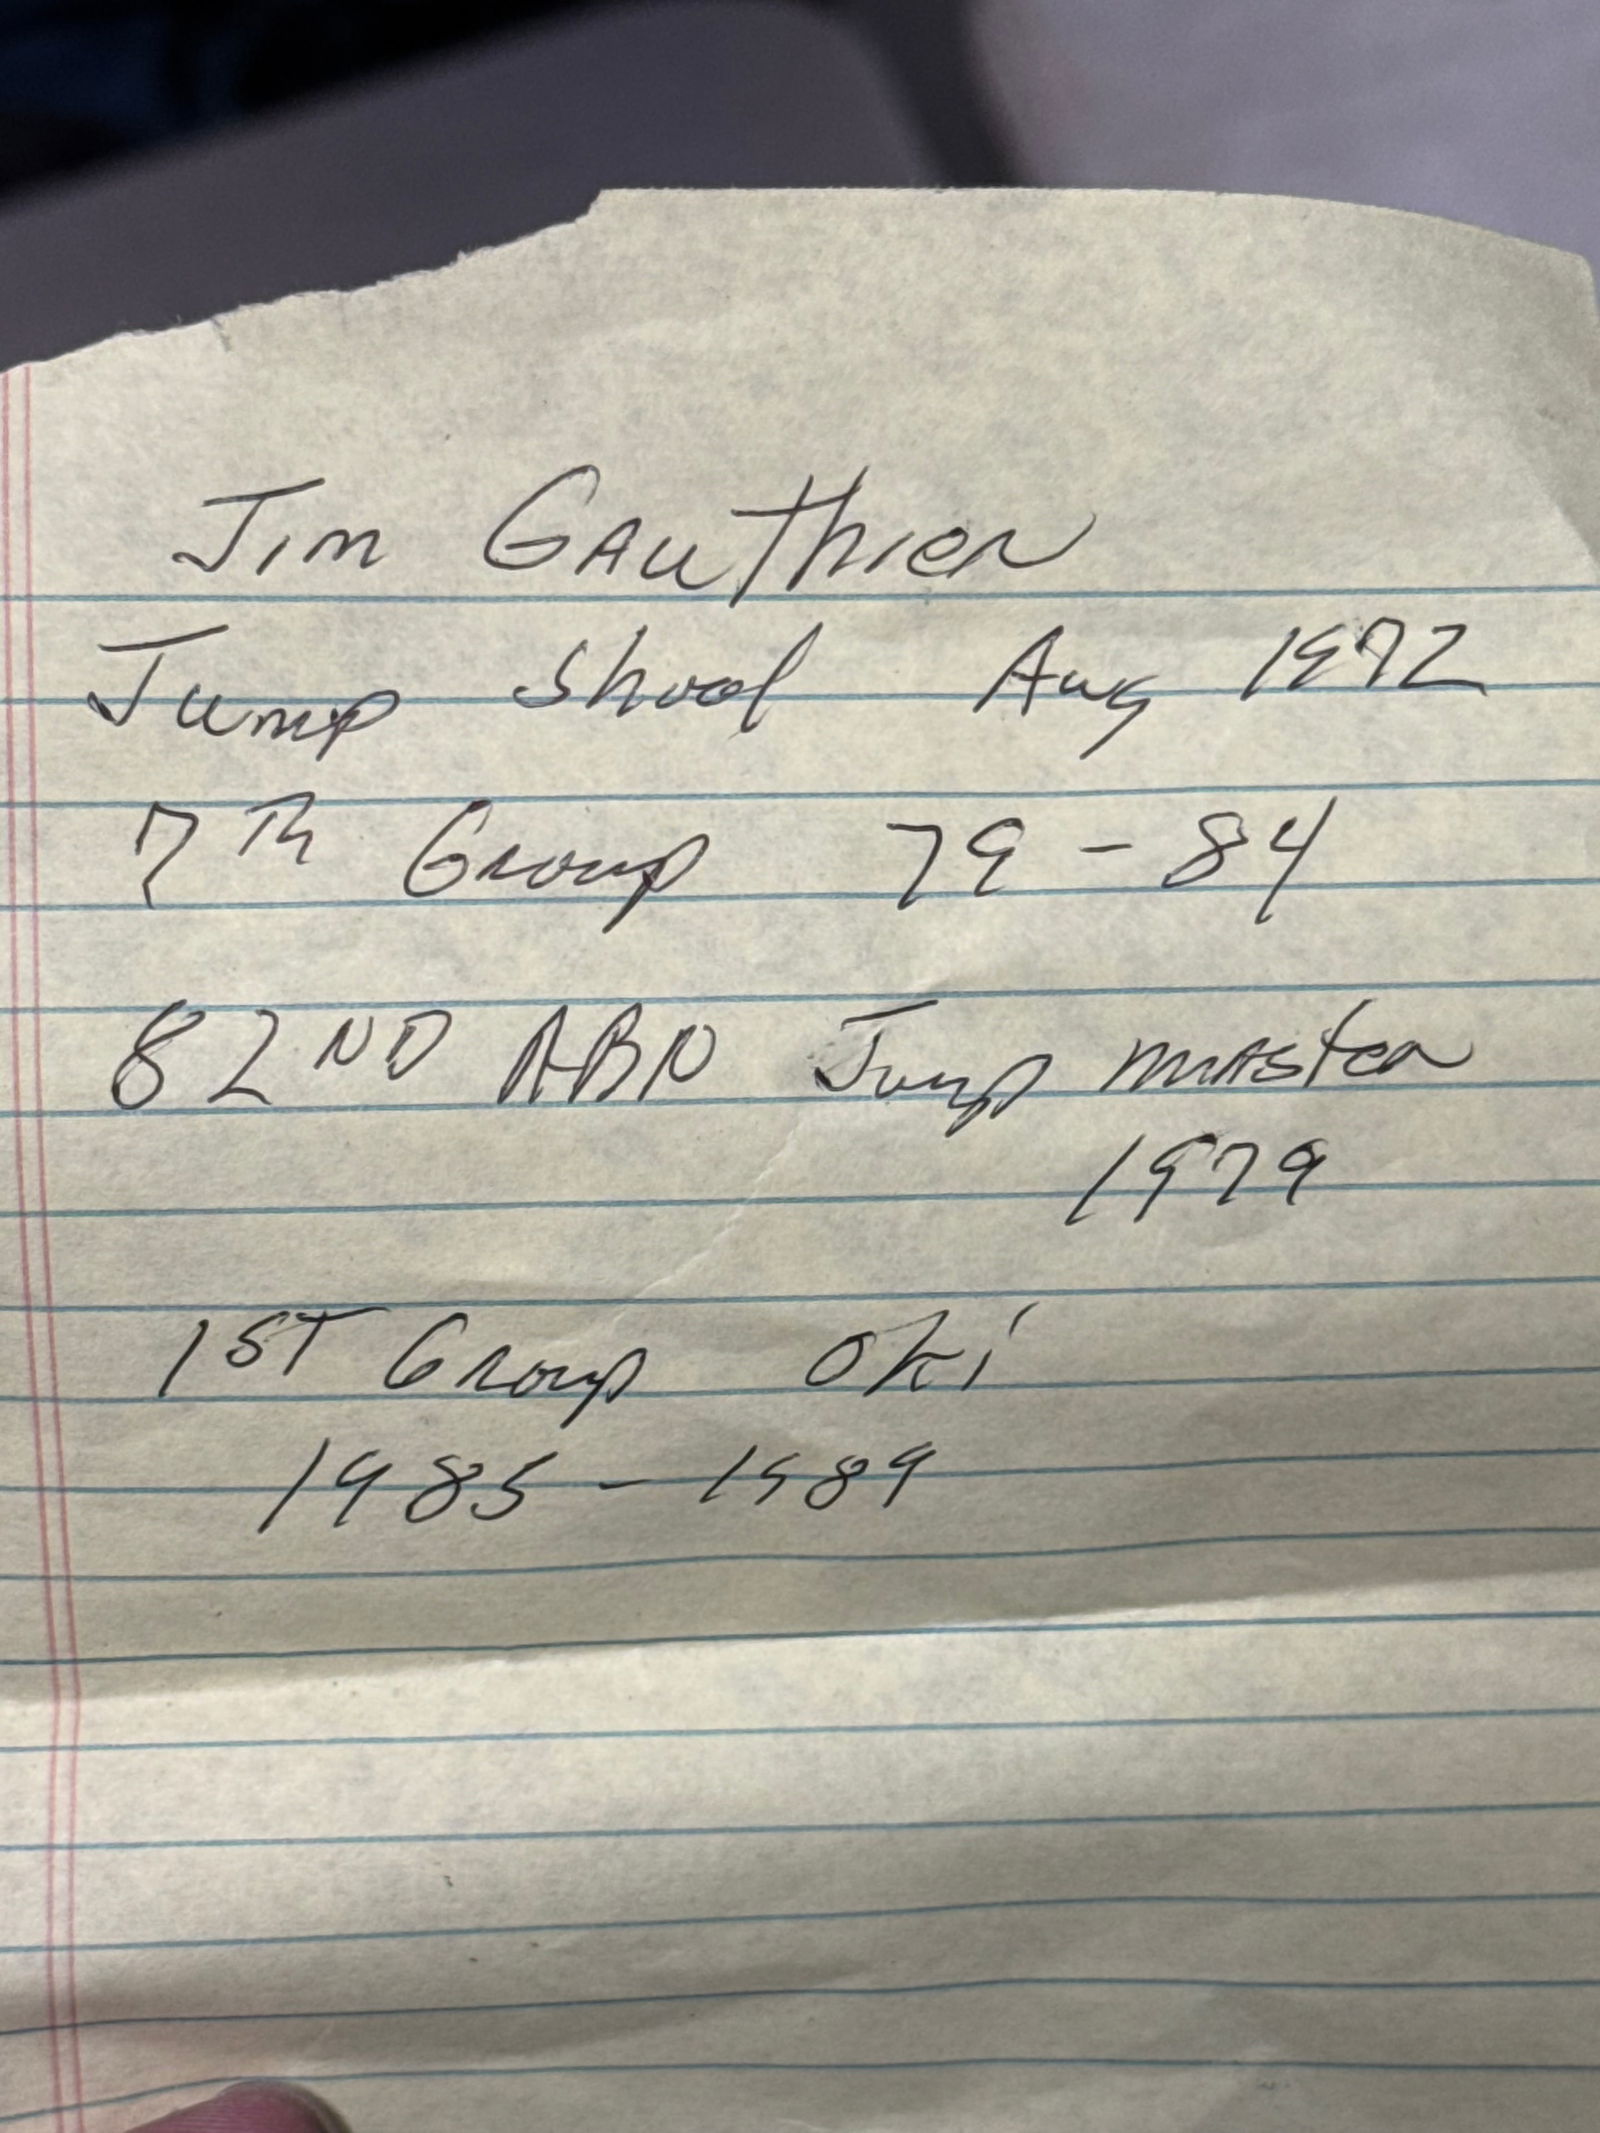 Jim Gauthier
Jump Shool Aug 1972
7Th Group 79-84
82ND ABN Jump master
1979
1ST Group Oki
1985 - 1989